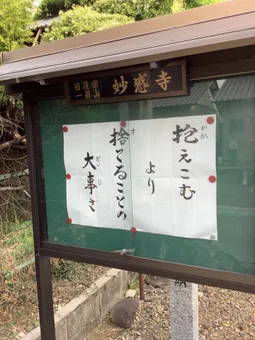 日蓮宗
一翁山
妙感寺
抱えこむ
より
捨てることの
大事さ